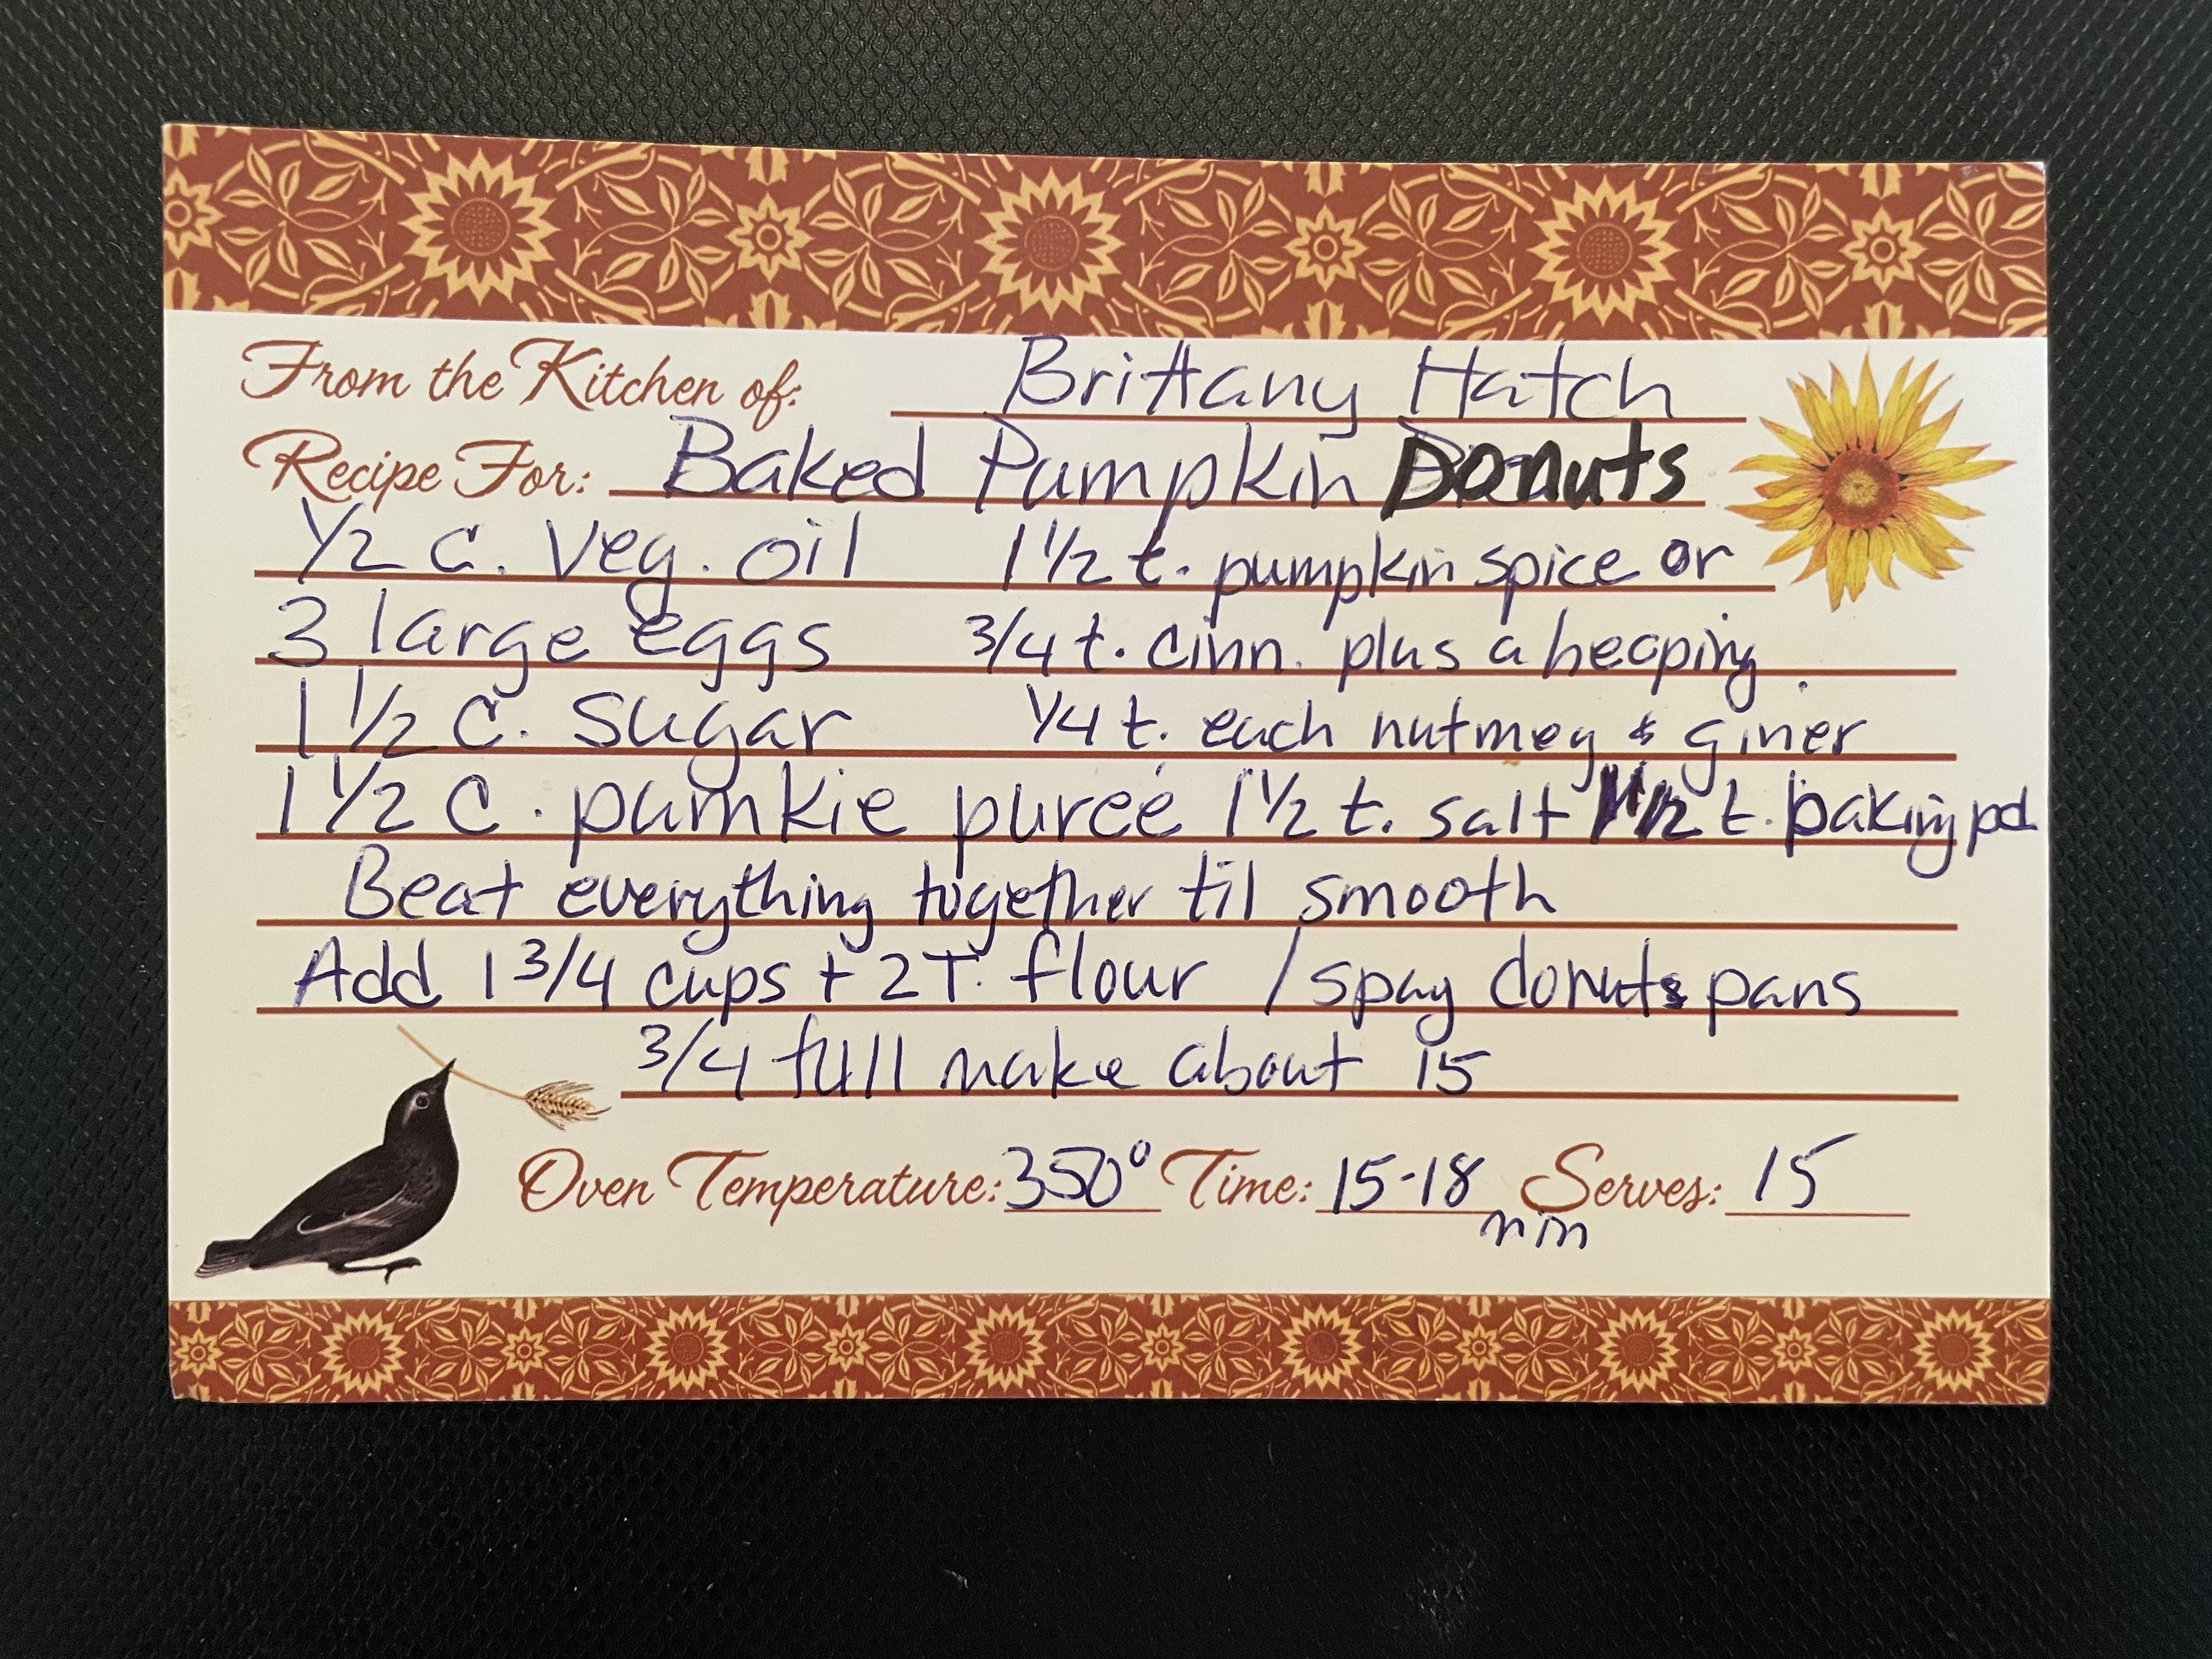 From the Kitchen of: Brittany Hatch
Recipe For: Baked Pumpkin Donuts
1/2 c. veg. oil 1 1/2 t. pumpkin spice or
3 large eggs 3/4 t. cinn. plus a heaping
1 1/2 c. sugar 1/4 t. each nutmeg & giner
1 1/2 c. pumkie pureé 1 1/2 t. salt 1 1/2 t. baking pd
Beat everything together til smooth
Add 1 3/4 cups + 2 T. flour / spay donuts pans
3/4 full make about 15
Oven Temperature: 350° Time: 15-18 min Serves: 15